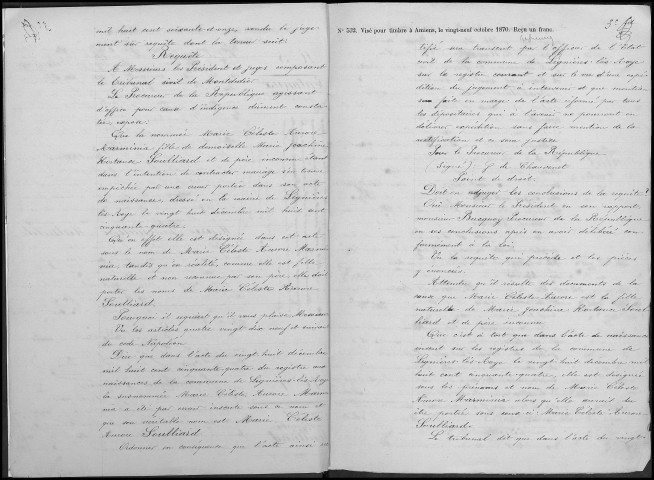 mil huit cent soixante et onze rendu le juge-
ment sur requête dont la teneur suit.
Requête
A Messieurs les Président et juges composant
le Tribunal civil de Montdidier
Le Procureur de la République agissant
d'office pour cause d'indigence dûment constatée
expose:
Que la nommée Marie Céleste Aurore
fille de demoiselle Marie Joachine
Hortence Soulliard et de père inconnu étant
dans l'intention de contracter mariage en
empêchée par une erreur portée dans son acte
de naissance dressé en la mairie de Lignières
les Roye le vingt huit décembre mil huit cent
cinquante quatre.
Qu'en effet elle est désignée dans cet acte
sous le nom de Marie Céleste Aurore
tandis qu'en réalité, comme elle est fille
naturelle et non reconnue par son père, elle doit
porter les noms de Marie Céleste Aurore
Soulliard.
Pourquoi il requiert qu'il vous plaise Messieurs
Vu les articles quatre vingt dix neuf et suivant
du code Napoléon
Dire que dans l'acte du vingt huit décembre
mil huit cent cinquante quatre du registre
naissances de la commune de Lignières-lès-Roye
la susnommée Marie Céleste Aurore
a été par erreur inscrite sous ce nom et
que son véritable nom est Marie Céleste
Aurore Soulliard.
Ordonner en conséquence que l'acte ainsi
N° 533. Visé pour timbre à Amiens, le vingt-neuf octobre 1870. Reçu un franc.
tifié sera transcrit par l'officier de l'état
civil de la commune de Lignières-lès-Roye
sur le registre courant et sur le vu d'une expé-
dition du jugement à intervenir et que mention
en sera faite en marge de l'acte réformé par tous
les dépositaires qui à l'avenir ne pourront en
délivrer expédition sans faire mention de la
rectification et ce sera justice
Pour le Procureur de la République
(Signé)
Point de droit.
Doit-on adjuger les conclusions de la requête?
Ouï Monsieur le Président en son rapport,
monsieur Procureur de la République
en ses conclusions après en avoir délibéré con-
formément à la loi.
Vu la requête qui précède et les pièces
y énoncées.
Attendu qu'il résulte des documents de la
cause que Marie Céleste Aurore est la fille
naturelle de Marie Joachine Hortence Soul-
liard et de père inconnu
Que c'est à tort que dans l'acte de naissance
inscrit sur les registres de la commune de
Lignières-lès-Roye le vingt huit décembre mil
huit cent cinquante quatre, elle est désignée
sous les prénoms et nom de Marie Céleste
Aurore alors qu'elle aurait dû
être portée sous ceux de Marie Céleste Aurore
Soulliard.
Le tribunal dit que dans l'acte du vingt